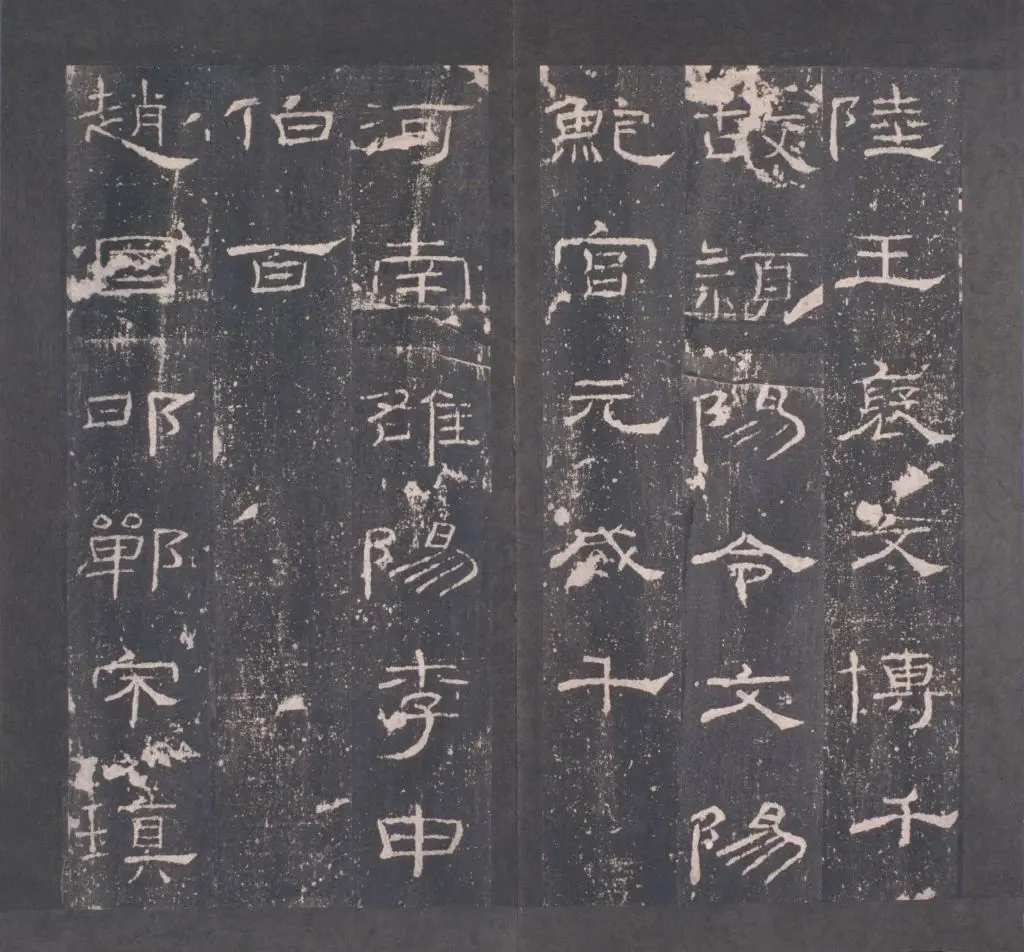 陸王褒文博千
故潁陽令文陽
鮑宮元威千
河南雒陽李申
伯百
趙國邯鄲宋瑱